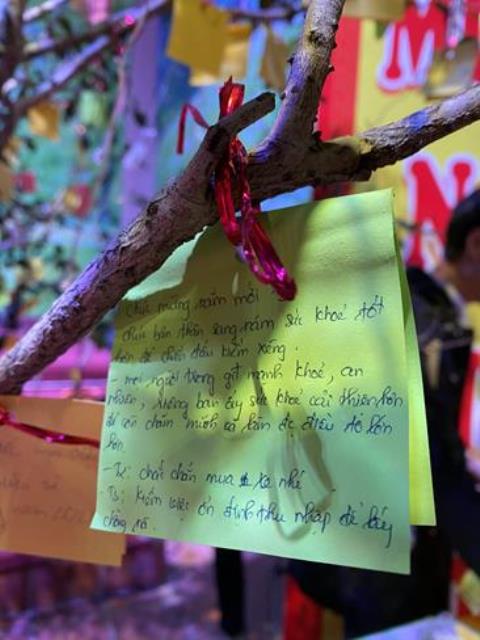 Chúc mừng năm mới
chúc bản thân sang năm sức khoẻ tốt
hơn để chiến đấu kiếm xèng.
- mọi người trong gđ mạnh khoẻ, an
nhiên, sức khoẻ cải thiện hơn
để còn chăm mình và làm đc điều to lớn
hơn
- Tr: chắc chắn mua xe nhé
- Ts: kiếm việc ổn định thu nhập để lấy
chồng nè.
M
N